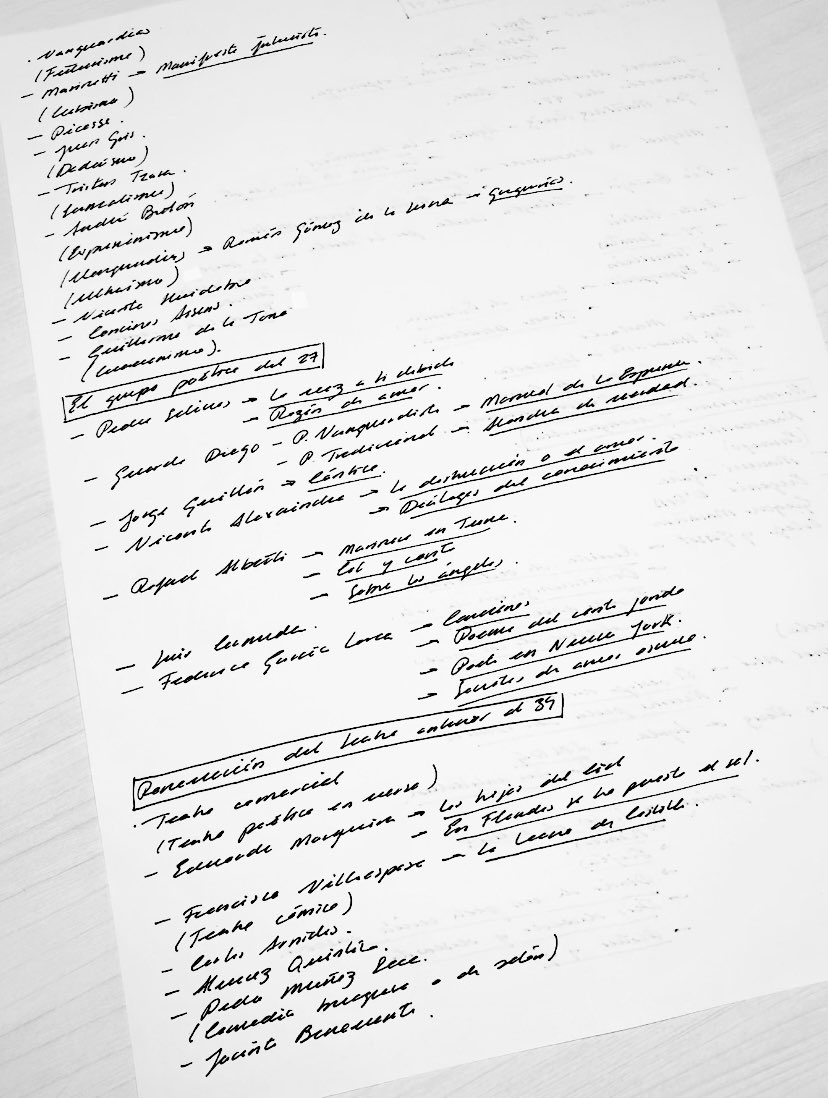 . Vanguardias
(Futurismo)
- Marinetti → Manifiesto futurista.
(Cubismo)
- Picasso.
- Juan Gris.
(Dadaísmo)
- Tristan Tzara.
(Surrealismo)
- André Bretón
(Expresionismo)
(Vanguardias) → Ramón Gómez de la Serna → Greguerías.
(Ultraísmo)
- Vicente Huidobro
- Cansinos Assens.
- Guillermo de la Torre
(Creacionismo).
El grupo poético del 27
- Pedro Salinas → La voz a ti debida
→ Razón de amor.
- Gerardo Diego - P. Vanguardista → Manual de la Espuma.
- P. Tradicional → Alondra de verdad.
- Jorge Guillén → Cántico.
- Vicente Aleixandre → La destrucción o el amor.
→ Diálogos del conocimiento
- Rafael Alberti → Marinero en Tierra.
→ Cal y canto
→ Sobre los ángeles.
- Luis Cernuda.
- Federico García Lorca → Canciones
→ Poema del cante jondo
→ Poeta en Nueva York.
→ Sonetos de amor oscuro.
Renovación del teatro anterior al 39
. Teatro comercial
(Teatro poético en verso)
- Eduardo Marquina → Las hijas del Cid
→ En Flandes se ha puesto el sol.
- Francisco Villaespesa → La Leona de Castilla.
(Teatro cómico)
- Carlos Arniches.
- Álvarez Quintero.
- Pedro Muñoz Seca.
(Comedia burguesa o de salón)
- Jacinto Benavente.